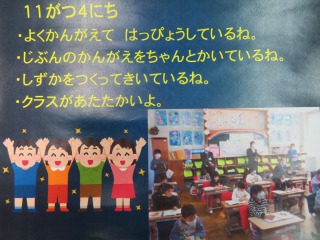 11がつ4にち
・よくかんがえて　はっぴょうしているね。
・じぶんのかんがえをちゃんとかいているね。
・しずかをつくってきいているね。
・クラスがあたたかいよ。